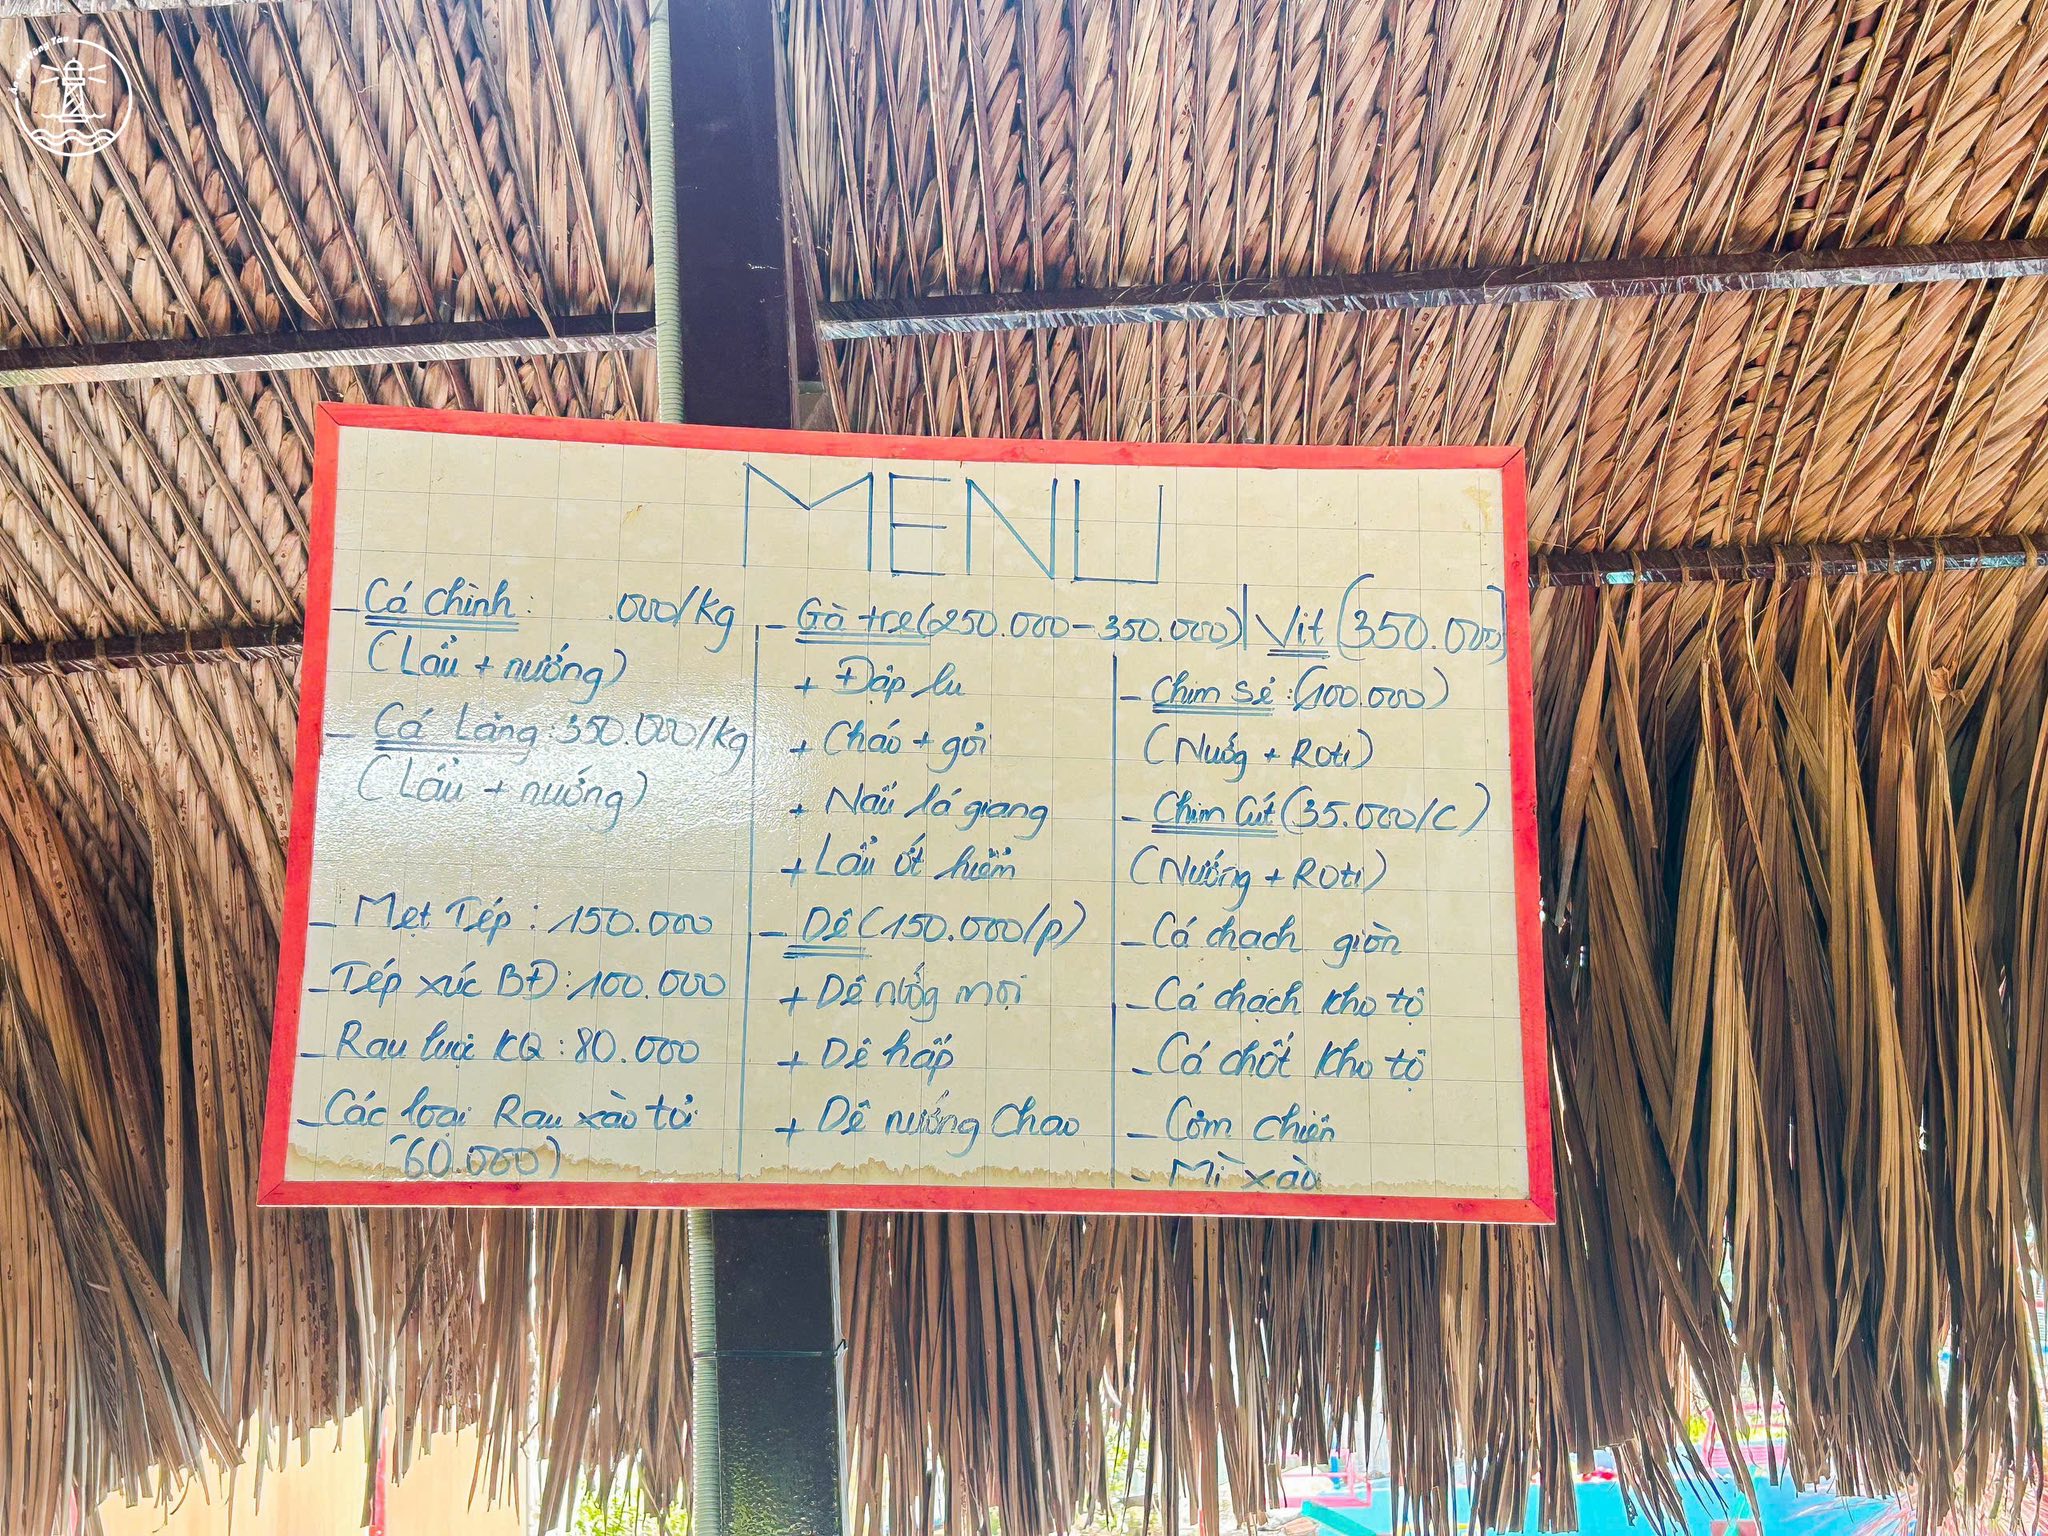 MENU
- Cá chình: .000/kg
(Lẩu + nướng)
- Cá Lăng: 350.000/kg
(Lẩu + nướng)
- Mẹt Tép: 150.000
- Tép xúc BĐ: 100.000
- Rau luộc KQ: 80.000
- Các loại Rau xào tỏi
(60.000)
- Gà tre (250.000 - 350.000)
+ Đập lu
+ Cháo + gỏi
+ Nấu lá giang
+ Lẩu ớt hiểm
- Dê (150.000/p)
+ Dê nướg mọi
+ Dê hấp
+ Dê nướng Chao
Vịt (350.000)
- Chim sẻ: (100.000)
(Nướg + Roti)
- Chim Cút (35.000/C)
(Nướng + Roti)
- Cá chạch giòn
- Cá chạch kho tộ
- Cá chốt kho tộ
- Cơm chiên
- Mì xào